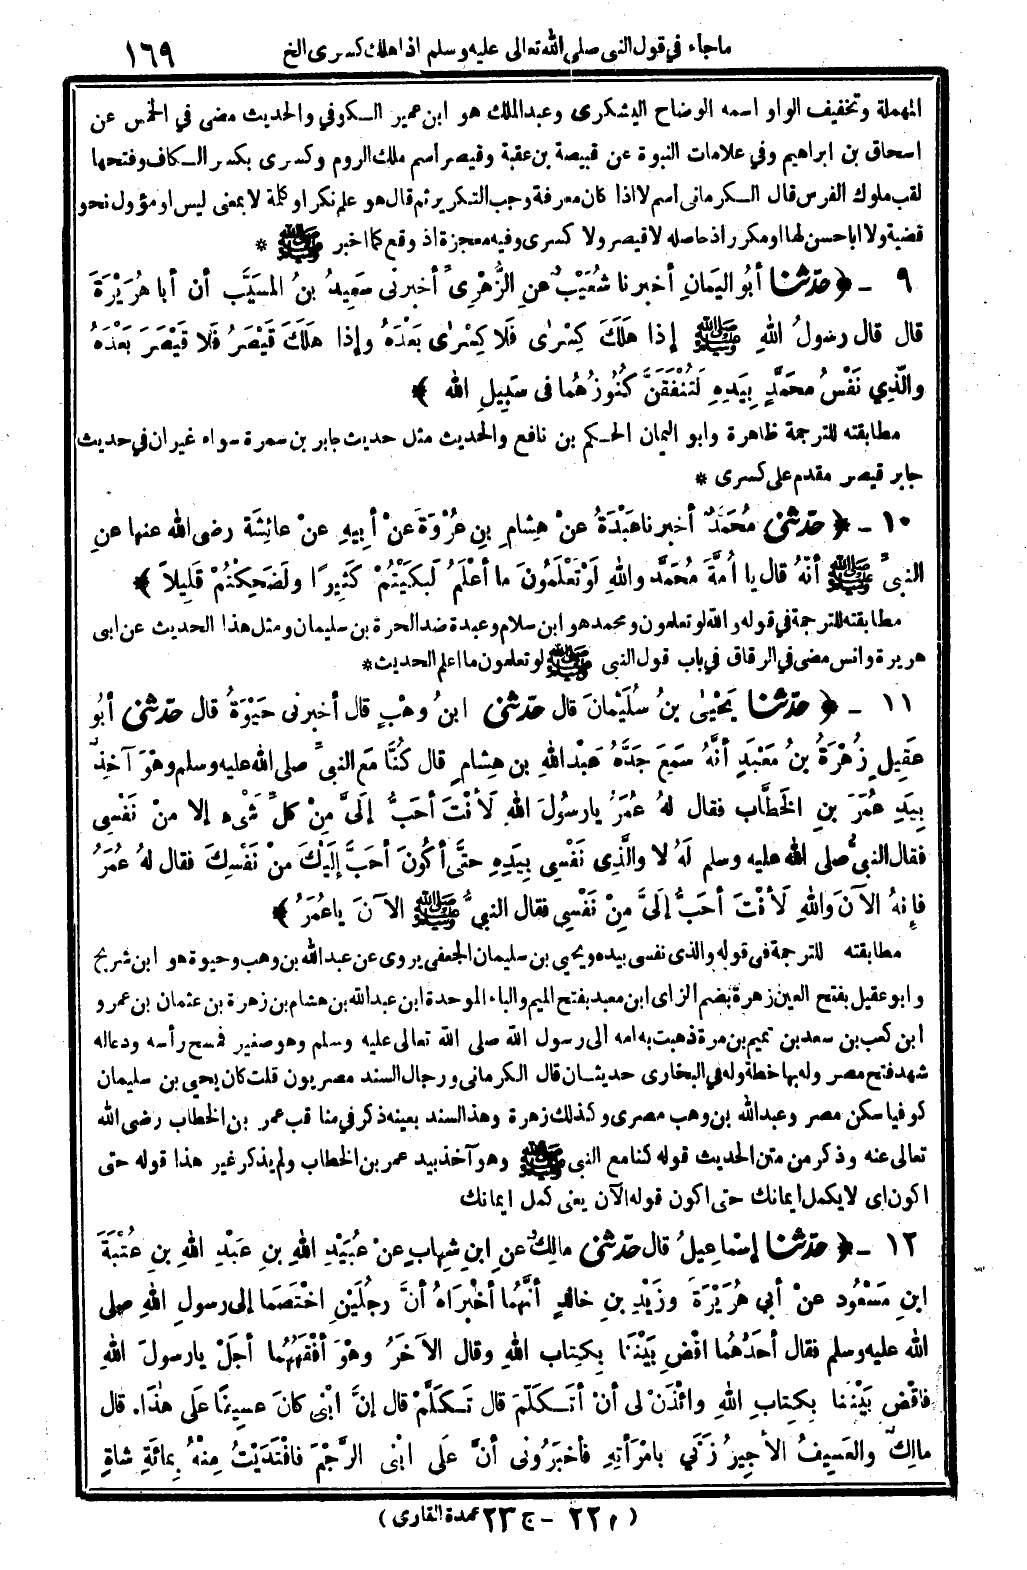 ماجاء في قول النبى صلى الله تعالى عليه وسلم اذا هلك كسرى الخ ١٦٩
المهملة وتخفيف الواو اسمه الوضاح اليشكرى وعبدالملك هو ابن عمير الكوفي والحديث مضى في الخمس عن
اسحاق بن ابراهيم وفي علامات النبوة عن قبيصة بن عقبة وقيصر اسم ملك الروم وكسرى بكسر الكاف وفتحها
لقب ملوك الفرس قال الكرمانى اسم لا اذا كان معرفة وجب التكرير ثم قال هو علم نكر او كلة لا بمعنى ليس او مؤول نحو
قضية ولا اباحسن لها او مكرر اذ حاصله لا قيصر ولا كسرى وفيه معجزة اذ وقع كما اخبر ﷺ *
٩ - ﴿ حدثنا أبُو اليمانِ أخبرنا شُعَيْبٌ عنِ الزُّهْرِىِّ أخبرنى سَعِيدُ بنُ المسَيَّبِ أن أبا هُرَيْرَةَ
قال قال رسولُ اللهِ ﷺ إذا هَلَكَ كِسْرَى فَلا كِسْرٰى بَعْدَهُ وإذا هلَكَ قَيْصَرُ فَلا قَيْصَرَ بَعْدَهُ
والَّذِي نَفْسُ محمَّدٍ بِيَدِهِ لَتُنْفَقَنَّ كُنُوزُهُما فى سَبِيلِ الله ﴾
مطابقته للترجمة ظاهرة وابو اليمان الحكم بن نافع والحديث مثل حديث جابر بن سمرة سواء غير ان في حديث
جابر قيصر مقدم على كسرى *
١٠ - ﴿ حدثنى مُحَمَّدٌ أخبرنا عَبْدَةُ عنْ هِشامِ بنِ عُرْوَةَ عنْ أبِيهِ عنْ عائِشَةَ رضى الله عنها عنِ
النبىِّ ﷺ أنّهُ قال يا أُمَّةَ مُحَمَّدٍ واللهِ لَوْ تَعْلَمُونَ ما أعْلَمُ لَبَكَيْتُمْ كَثِيرًا ولَضَحِكْتُمْ قَلِيلاً ﴾
مطابقته للترجمة في قوله والله لو تعلمون ومحمد هو ابن سلام وعبدة ضد الحرة بن سليمان ومثل هذا الحديث عن ابى
هريرة وانس مضى في الرقاق في باب قول النبى ﷺ لو تعلمون ما اعلم الحديث *
١١ - ﴿ حدثنا يَحْيٰى بنُ سُلَيْمانَ قال حدثنى ابنُ وهْبٍ قال أخبرنى حَيْوَةُ قال حدثنى أبُو
عَقِيلٍ زُهْرَةُ بنُ مَعْبَدٍ أنَّهُ سَمِعَ جَدَّهُ عَبْدَ اللهِ بنَ هِشامٍ قال كُنَّا مَعَ النبىِّ صلى الله عليه وسلم وهوَ آخِذٌ
بِيَدِ عُمَرَ بنِ الخَطَّابِ فقال لهُ عُمَرُ يارسولَ اللهِ لَأنْتَ أحَبُّ إلَىَّ مِنْ كلِّ شَىْءٍ إلا مِنْ نَفْسِى
فقال النبىُّ صلى الله عليه وسلم لَهُ لا والَّذِى نَفْسِى بِيَدِهِ حتَّى أكُونَ أحَبَّ إلَيْكَ مِنْ نَفْسِكَ فقال لهُ عُمَرُ
فإنهُ الآنَ واللهِ لَأنْتَ أحَبُّ إلَىَّ مِنْ نَفْسِى فقال النبىُّ ﷺ الآنَ ياعُمَرُ ﴾
مطابقته للترجمة فى قوله والذى نفسى بيده ويحيى بن سليمان الجعفى يروى عن عبدالله بن وهب وحيوة هو ابن شريح
وابو عقيل بفتح العين زهرة بضم الزاى ابن معبد بفتح الميم والباء الموحدة ابن عبدالله بن هشام بن زهرة بن عثمان بن عمرو
ابن كعب بن سعد بن تميم بن مرة ذهبت به امه الى رسول الله صلى الله تعالى عليه وسلم وهو صغير فمسح رأسه ودعاله
شهد فتح مصر وله بها خطة وله في البخارى حديثان قال الكرمانى ورجال السند مصريون قلت كان يحيى بن سليمان
كوفيا سكن مصر وعبدالله بن وهب مصرى وكذلك زهرة وهذا السند بعينه ذكر في مناقب عمر بن الخطاب رضى الله
تعالى عنه وذكر من متن الحديث قوله كنا مع النبى ﷺ وهو آخذ بيد عمر بن الخطاب ولم يذكر غير هذا قوله حتى
اكون اى لا يكمل ايمانك حتى اكون قوله الآن يعنى كمل ايمانك
١٢ - ﴿ حدثنا إسْماعِيلُ قال حدثنى مالِكٌ عنِ ابنِ شِهابٍ عنْ عُبَيْدِ اللهِ بنِ عَبْدِ اللهِ بنِ عُتْبَةَ
ابنِ مَسْعُودٍ عنْ أبي هُرَيْرَةَ وزَيْدِ بنِ خالِدٍ أنَّهُما أخْبَرَاهُ أنَّ رجُلَيْنِ اخْتَصَما إلى رسولِ اللهِ صلى
الله عليه وسلم فقال أحَدُهُما اقْضِ بَيْنَنا بِكِتابِ اللهِ وقال الآخَرُ وهْوَ أفْقَهُهُما أجَلْ يارسولَ اللهِ
فاقْضِ بَيْنَنا بِكِتابِ اللهِ وائْذَنْ لى أنْ أتَكَلَّمَ قال تَكَلَّمْ قال إنَّ ابْنى كانَ عَسِيفًا علَى هٰذا. قال
مالِكٌ والعَسِيفُ الأجِيرُ زَنَي بامْرَأتِهِ فأخبَرُونى أنَّ علَى ابْنى الرَّجْمَ فافْتَدَيْتُ مِنْهُ بِمائَةِ شاةٍ
( م ٢٢ - ج ٢٣ عمدة القارى )